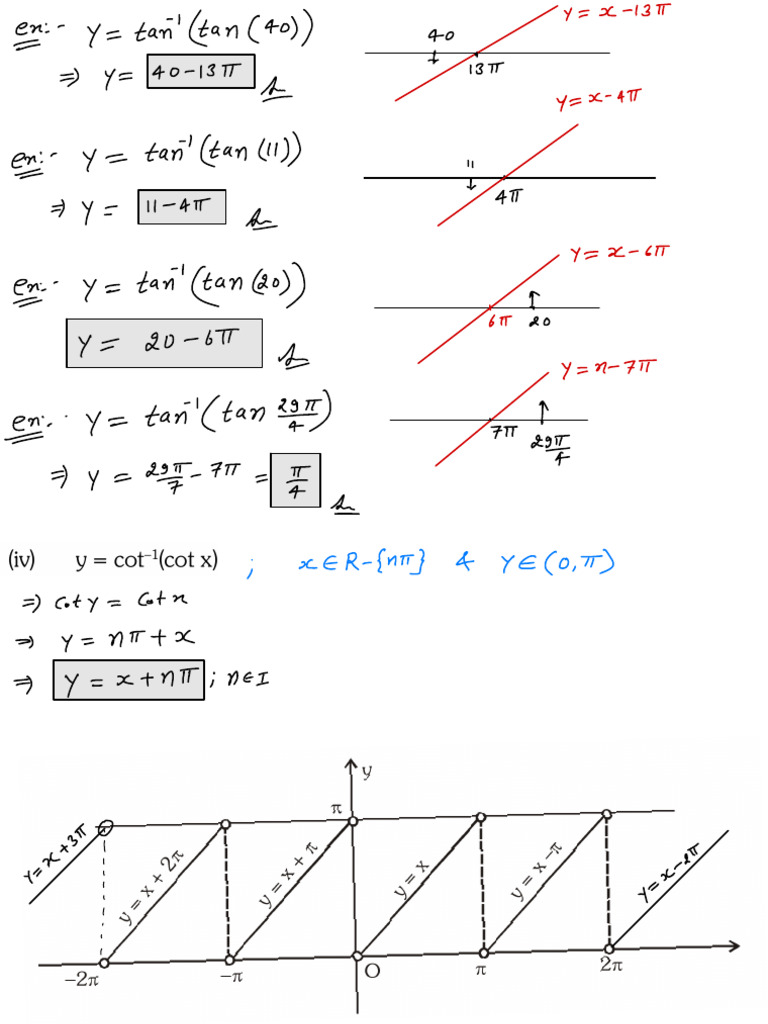 ex:- y = tan⁻¹(tan(40))
⇒ y = 40-13π
40
13π
y = x-13π
ex:- y = tan⁻¹(tan(11))
⇒ y = 11-4π
11
4π
y = x-4π
ex:- y = tan⁻¹(tan(20))
y = 20-6π
6π 20
y = x-6π
ex:- y = tan⁻¹(tan 29π/4)
⇒ y = 29π/7 - 7π = π/4
7π 29π/4
y = n-7π
(iv) y = cot⁻¹(cot x) ; x∈R-{nπ} & y∈(0,π)
⇒ cot y = cot x
⇒ y = nπ+x
⇒ y = x+nπ ; n∈I
y
π
y = x+3π
y = x + 2π
y = x + π
y = x
y = x - π
y = x-2π
-2π -π O π 2π